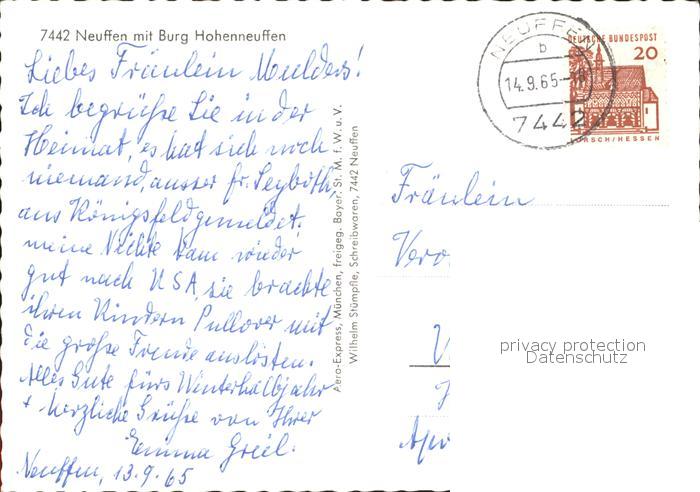 7442 Neuffen mit Burg Hohenneuffen
Liebes Fräulein Mulders!
Ich begrüße Sie in der
Heimat, es hat sich noch
niemand, ausser Fr. Seyboth,
aus Königsfeld gemeldet.
meine Nichte kam wieder
gut nach USA, sie brachte
ihren Kindern Pullover mit
die große Freude auslösten.
Alles Gute fürs Winterhalbjahr
+ herzliche Grüße von Ihrer
Emma Greil.
Neuffen, 13.9.65
Aero-Express, München, freigeg. Bayer. St. M. f. W. u. V.
Wilhelm Stümpfle, Schreibwaren, 7442 Neuffen
NEUFFEN
b
14.9.65-18
7442
DEUTSCHE BUNDESPOST
20
LORSCH/HESSEN
Fräulein
Vero
privacy protection
Datenschutz